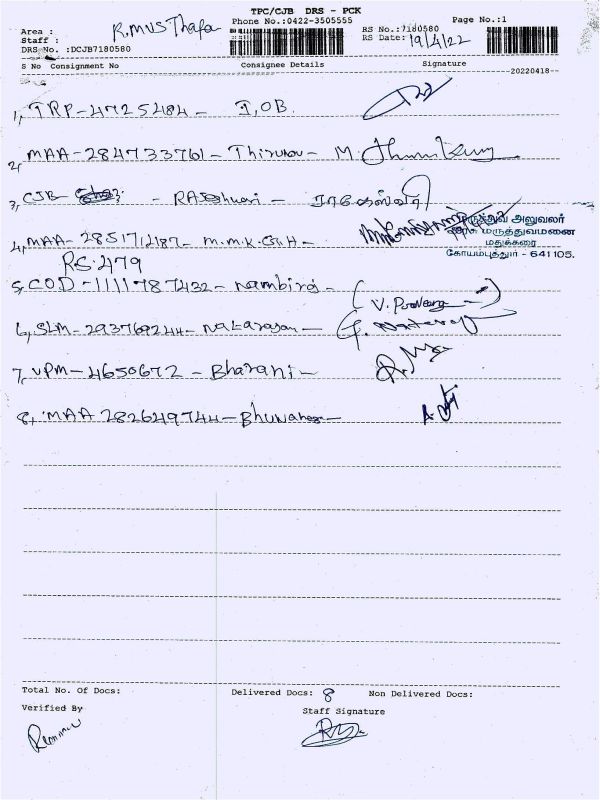 TPC/CJB DRS - PCK
Area : R.MUSThafa Phone No.:0422-3505555 Page No.:1
Staff : RS No.:7180580
DRS No. :DCJB7180580 RS Date: 19/4/22
S No Consignment No Consignee Details Signature
20220418
1, TRP-47125484- I,OB
2, MAA-284733761- M.
3, CJB - ராகேஸ்வரி
மருத்துவ அலுவலர்
அரசு மருத்துவமனை
4, MAA- 2851712187- M.M.K.G.H- மதுக்கரை
RS.479 கோயம்புத்தூர் - 641105.
5, COD -1111787432-
6, SLM-293769244-
7, VPM-4650672 - Bharani-
8, MAA 282649744-
Total No. Of Docs: Delivered Docs: 8 Non Delivered Docs:
Verified By Staff Signature